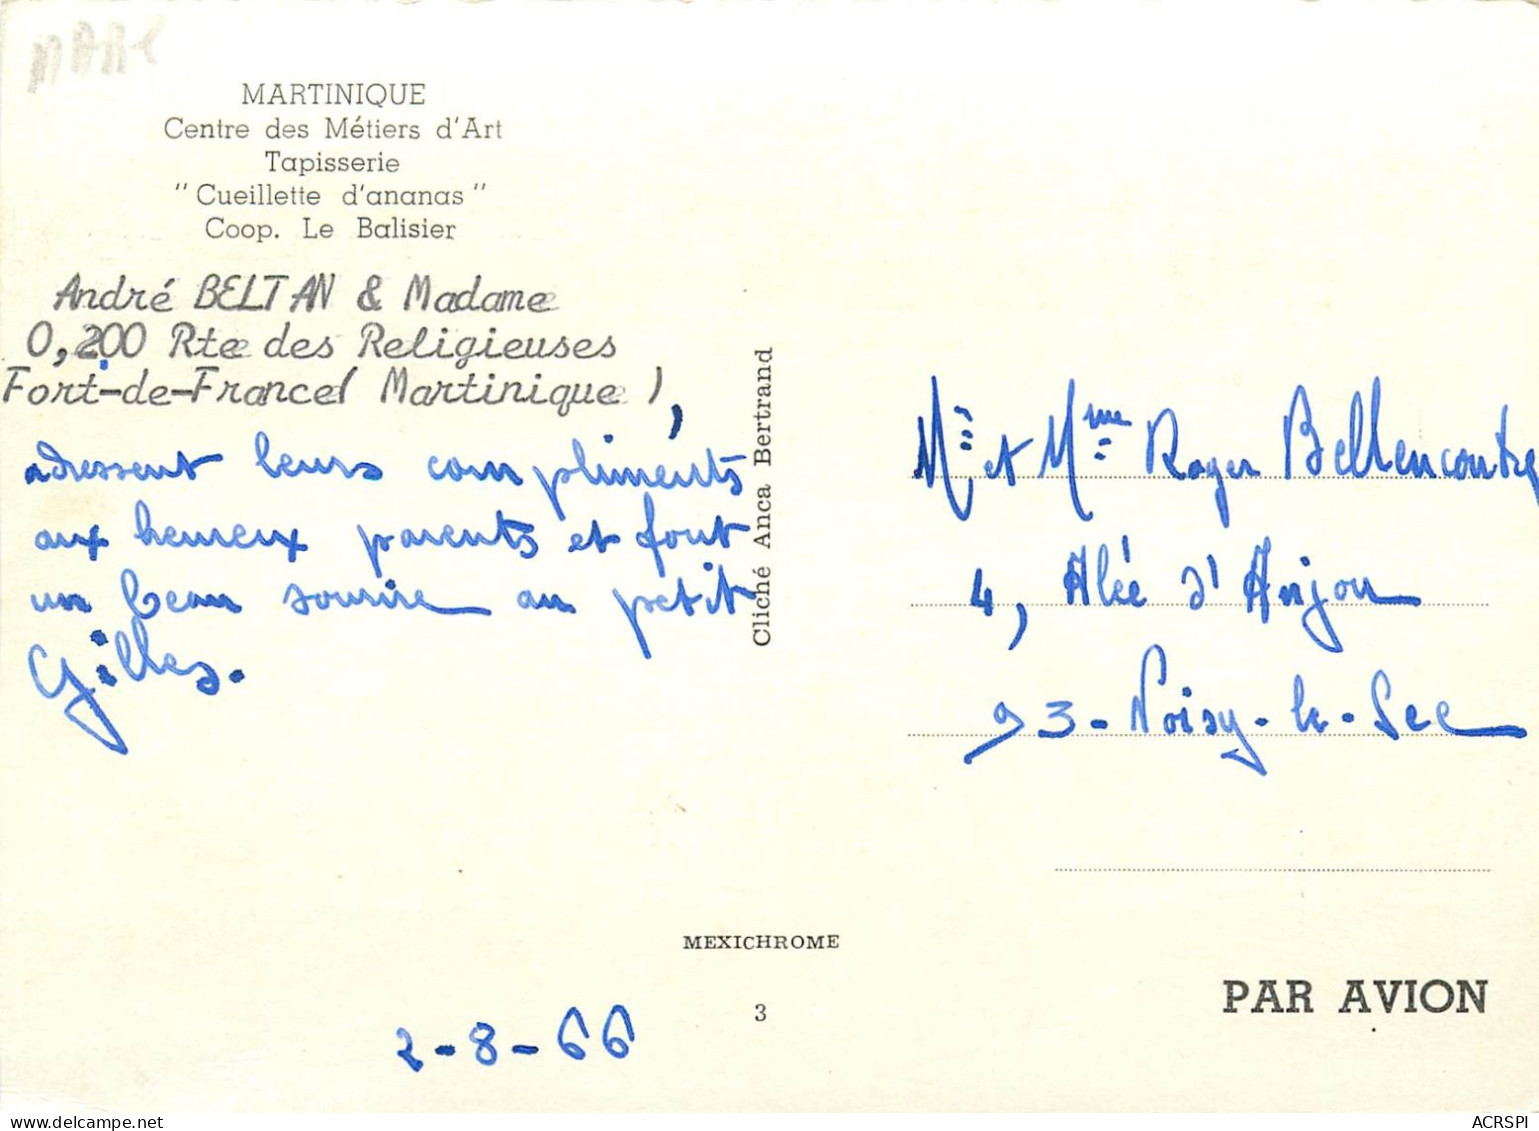 MARTINIQUE
Centre des Métiers d'Art
Tapisserie
"Cueillette d'ananas"
Coop. Le Balisier
André BELTAN & Madame
0,200 Rte des Religieuses
Fort-de-France( Martinique ),
adressent leurs compliments
aux heureux parents et font
un beau sourire au petit
Gilles.
2-8-66
Cliché Anca Bertrand
MEXICHROME
3
Mr et Mme Roger Bellencontre
4, Alée d'Anjou
93-Noisy-le-Sec
PAR AVION
delcampe.net
ACRSPI